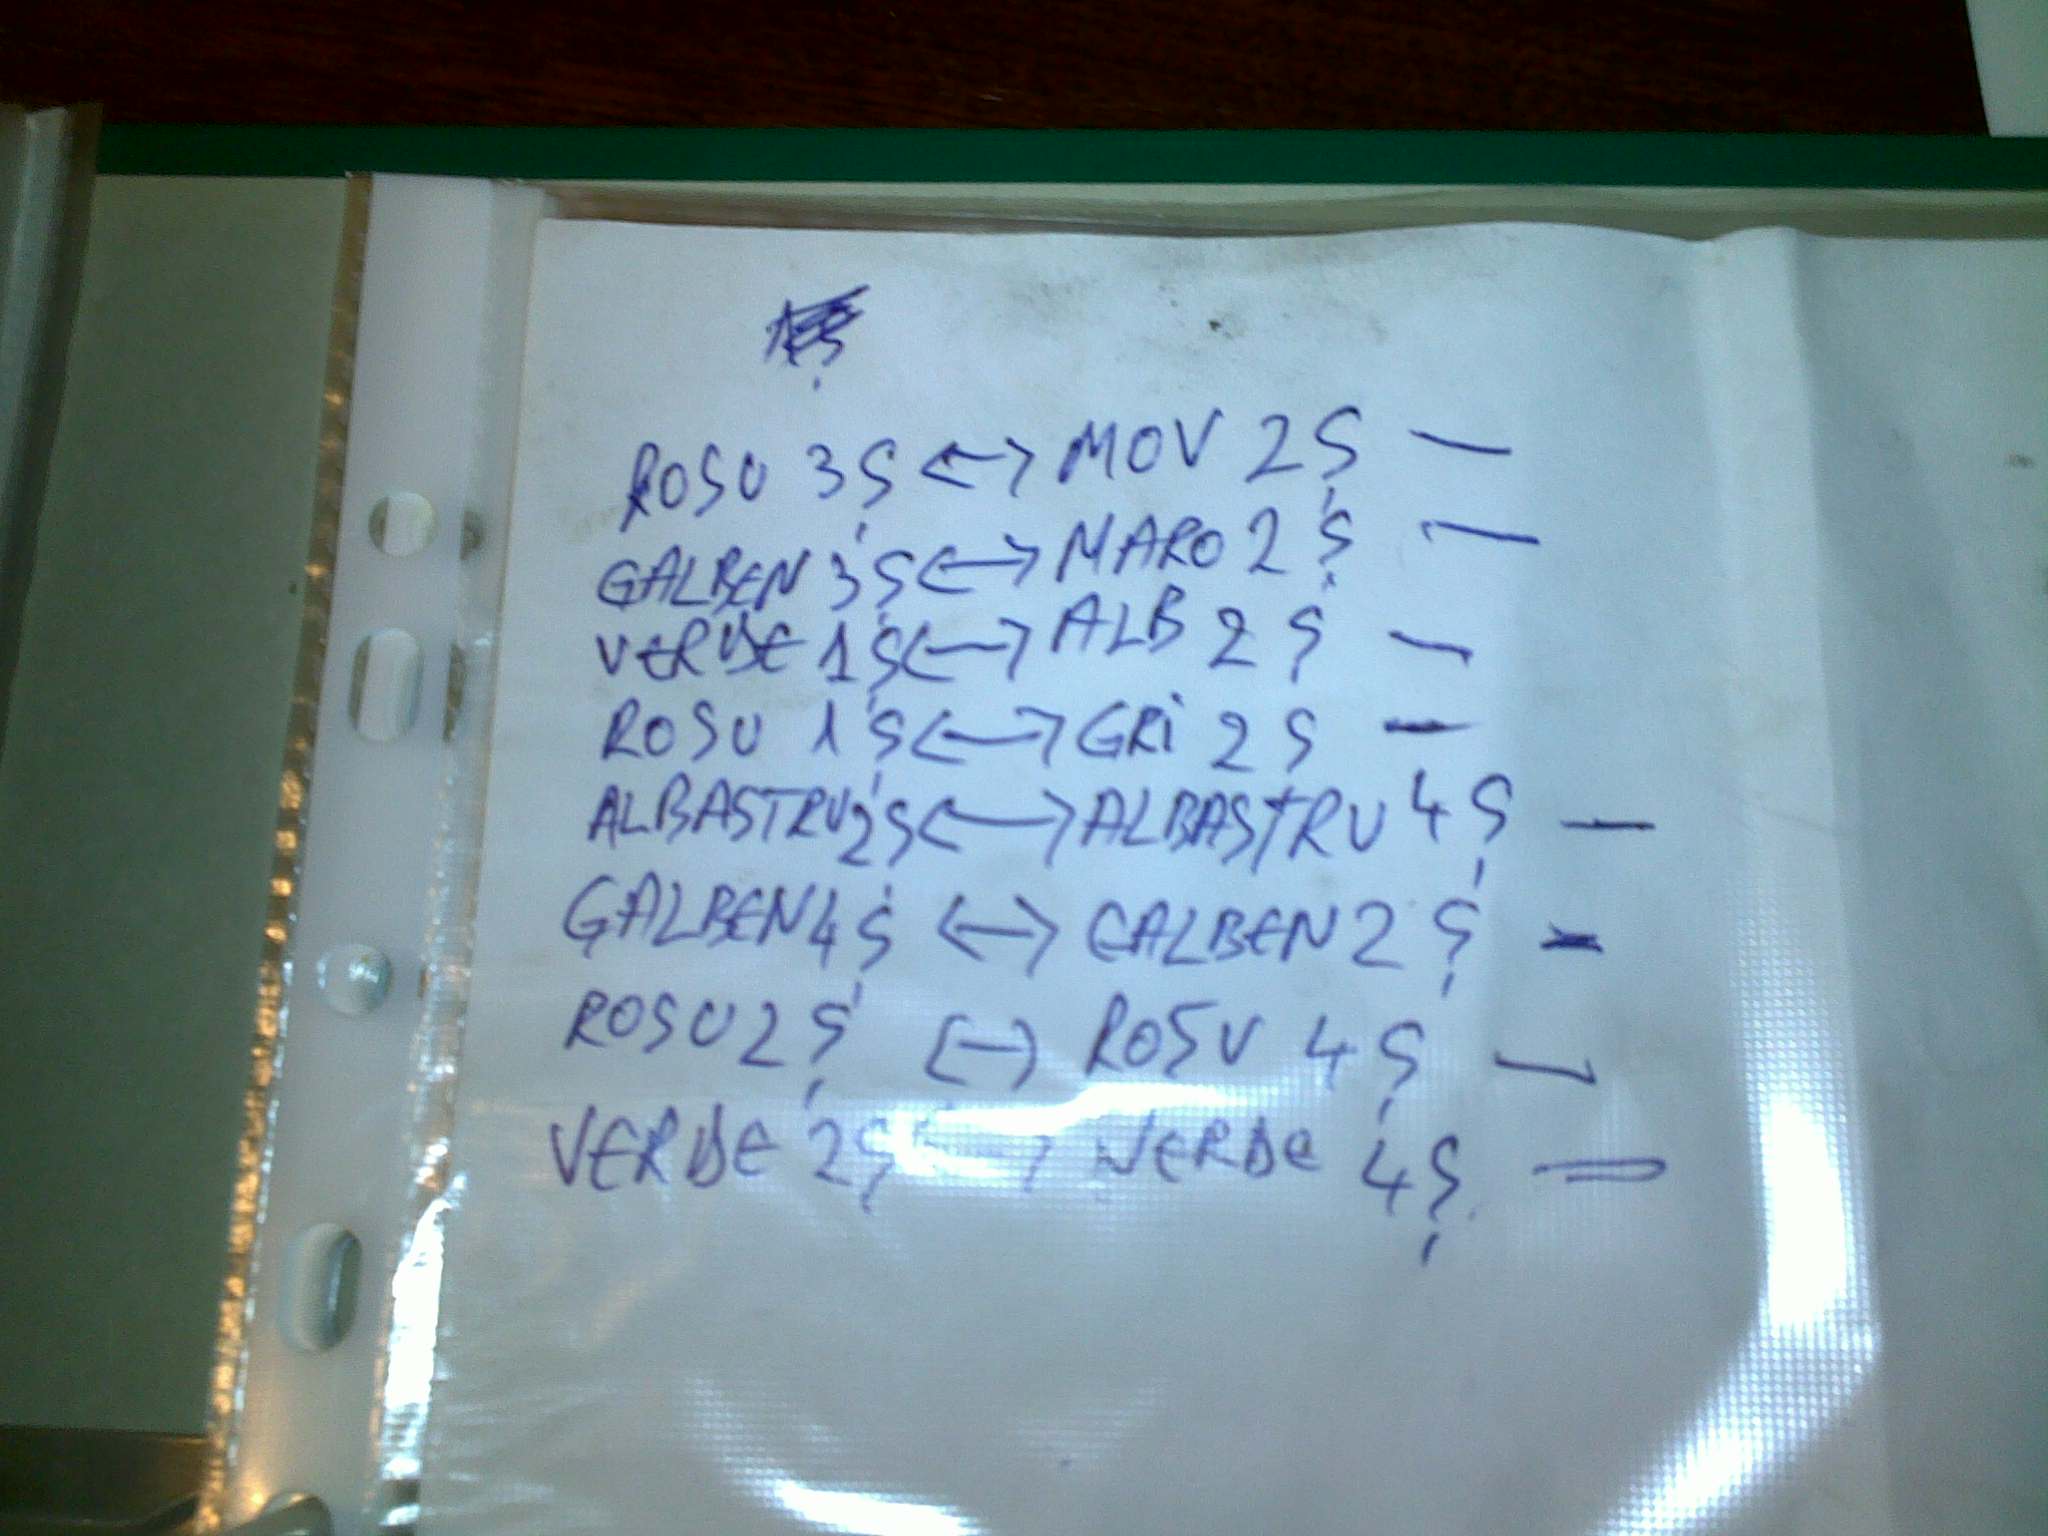 ROSU 3Ș <-> MOV 2Ș —
GALBEN 3Ș <-> MARO 2Ș —
VERDE 1Ș <-> ALB 2Ș —
ROSU 1Ș <-> GRi 2S —
ALBASTRU 2Ș <-> ALBASTRU 4Ș —
GALBEN 4Ș <-> GALBEN 2Ș —
ROSU 2Ș <-> ROSU 4Ș —
VERDE 2Ș <-> VERDE 4Ș —